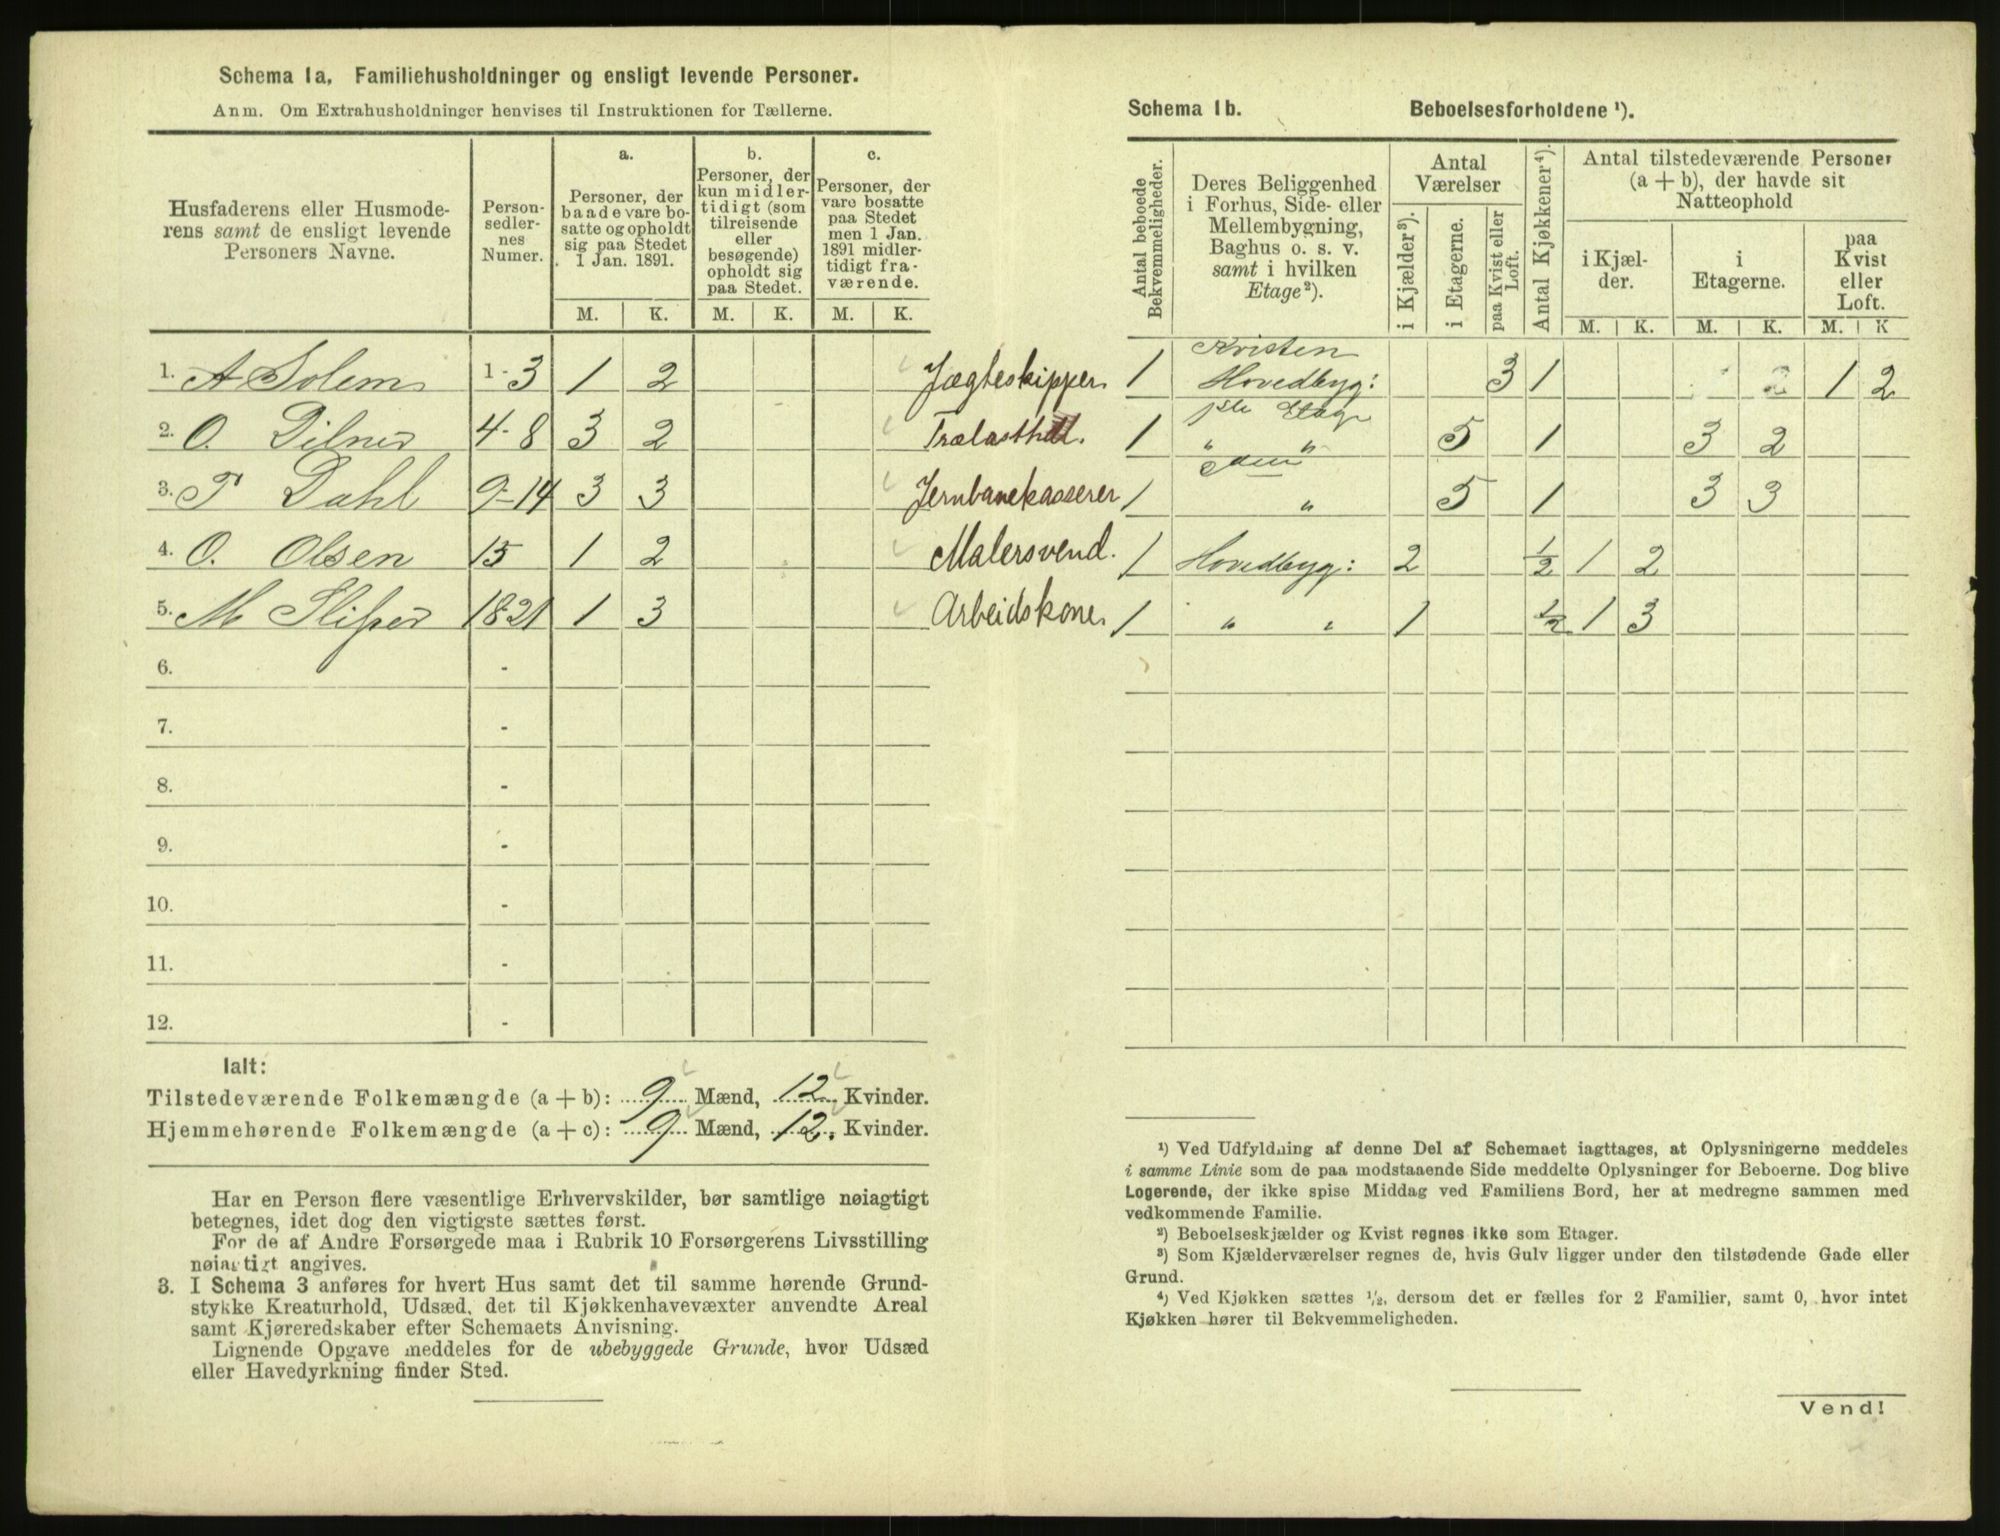 Schema 1a. Familiehusholdninger og ensligt levende Personer.
Anm. Om Extrahusholdninger henvises til Instruktionen for Tællerne.
Husfaderens eller Husmoderens samt de ensligt levende Personers Navne.
Personsedlernes Numer.
a.
Personer, der baade vare bosatte og opholdt sig paa Stedet 1 Jan. 1891.
b.
Personer, der kun midlertidigt (som tilreisende eller besøgende) opholdt sig paa Stedet.
c.
Personer, der vare bosatte paa Stedet men 1 Jan. 1891 midlertidigt fraværende.
M. K. M. K. M. K.
1. A Solem 1-3 1 2 Jægteskipper.
2. O. Dilner 4-8 3 2
3. P Dahl 9-14 3 3 Jernbanekasserer
4. O. Olsen 15 1 2 Malersvend.
5. M 1821 1 3 Arbeidskone.
6. -
7. -
8. -
9. -
10. -
11. -
12. -
Ialt:
Tilstedeværende Folkemængde (a + b): 9 Mænd, 12 Kvinder.
Hjemmehørende Folkemængde (a + c): 9 Mænd, 12. Kvinder.
Har en Person flere væsentlige Erhvervskilder, bør samtlige nøiagtigt
betegnes, idet dog den vigtigste sættes først.
For de af Andre Forsørgede maa i Rubrik 10 Forsørgerens Livsstilling
nøiagtigt angives.
3. I Schema 3 anføres for hvert Hus samt det til samme hørende Grund-
stykke Kreaturhold, Udsæd, det til Kjøkkenhavevæxter anvendte Areal
samt Kjøreredskaber efter Schemaets Anvisning.
Lignende Opgave meddeles for de ubebyggede Grunde, hvor Udsæd
eller Havedyrkning finder Sted.
Schema 1b. Beboelsesforholdene ¹).
Antal beboede Bekvemmeligheder.
Deres Beliggenhed i Forhus, Side- eller Mellembygning, Baghus o. s. v. samt i hvilken Etage²).
Antal Værelser
i Kjælder³).
i Etagerne.
paa Kvist eller Loft.
Antal Kjøkkener⁴).
Antal tilstedeværende Personer (a + b), der havde sit Natteophold
i Kjælder.
i Etagerne.
paa Kvist eller Loft.
M. K. M. K. M. K
1 Kvisten Hovedbyg: 3 1 1 2
1 Etage " " 5 1 3 2
1 " 5 1 3 3
1 Hovedbyg: 2 1/2 1 2
1 " " 1 1/2 1 3
¹) Ved Udfyldning af denne Del af Schemaet iagttages, at Oplysningerne meddeles
i samme Linie som de paa modstaaende Side meddelte Oplysninger for Beboerne. Dog blive
Logerende, der ikke spise Middag ved Familiens Bord, her at medregne sammen med
vedkommende Familie.
²) Beboelseskjælder og Kvist regnes ikke som Etager.
³) Som Kjælderværelser regnes de, hvis Gulv ligger under den tilstødende Gade eller
Grund.
⁴) Ved Kjøkken sættes ½, dersom det er fælles for 2 Familier, samt 0, hvor intet
Kjøkken hører til Bekvemmeligheden.
Vend!